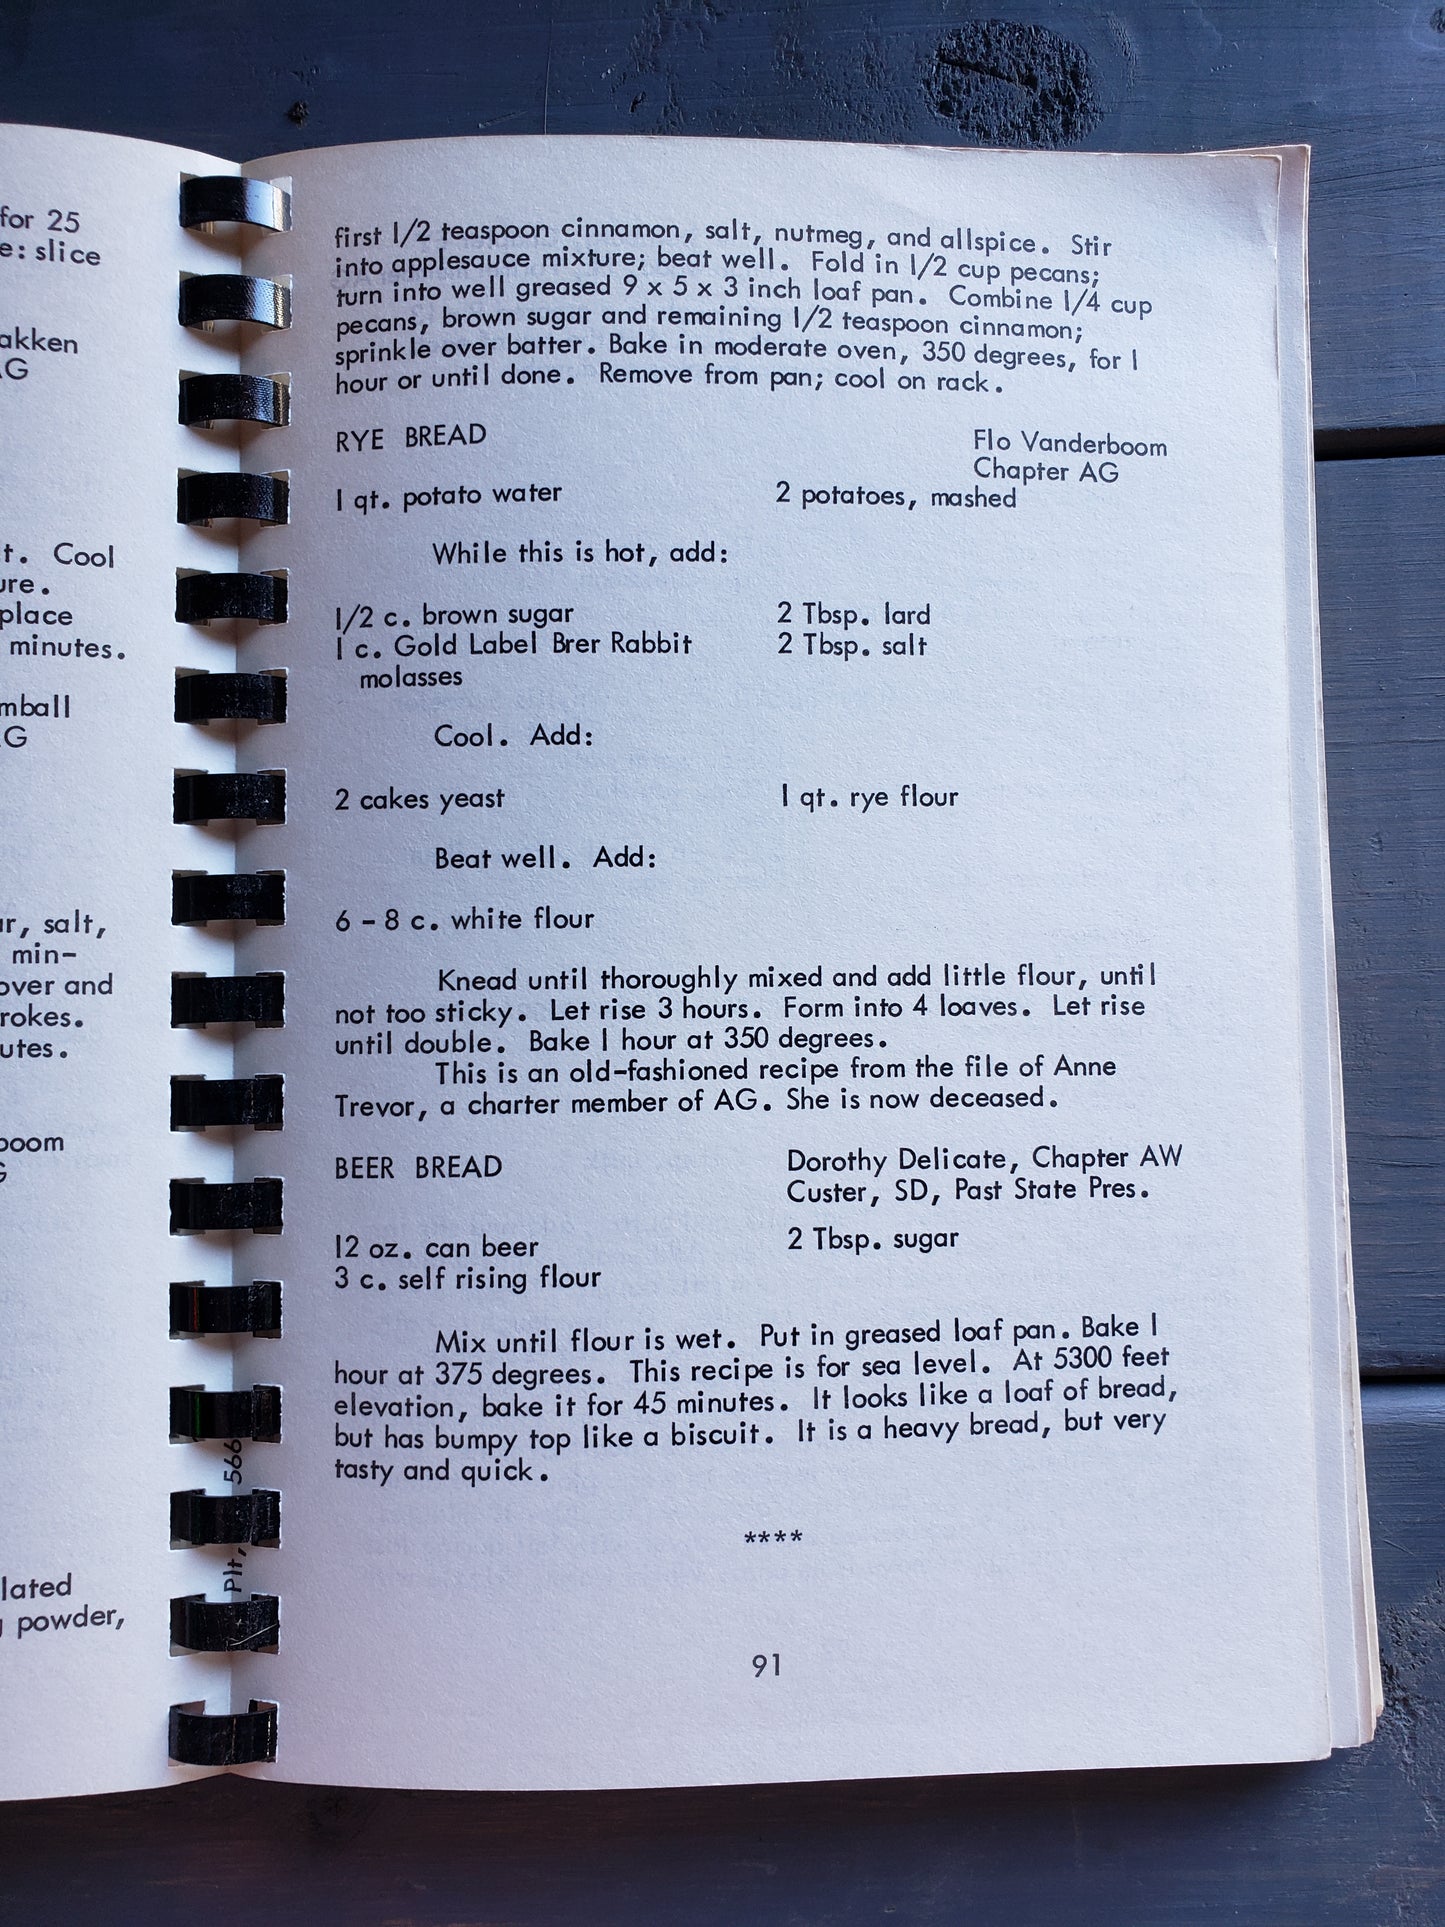 for 25
e: slice
akken
G
t. Cool
ure.
place
minutes.
mball
G
r, salt,
min-
over and
rokes.
utes.
boom
G
lated
powder,
Plt, 566
first 1/2 teaspoon cinnamon, salt, nutmeg, and allspice. Stir
into applesauce mixture; beat well. Fold in 1/2 cup pecans;
turn into well greased 9 x 5 x 3 inch loaf pan. Combine 1/4 cup
pecans, brown sugar and remaining 1/2 teaspoon cinnamon;
sprinkle over batter. Bake in moderate oven, 350 degrees, for 1
hour or until done. Remove from pan; cool on rack.
RYE BREAD Flo Vanderboom
Chapter AG
1 qt. potato water 2 potatoes, mashed
While this is hot, add:
1/2 c. brown sugar 2 Tbsp. lard
1 c. Gold Label Brer Rabbit 2 Tbsp. salt
molasses
Cool. Add:
2 cakes yeast 1 qt. rye flour
Beat well. Add:
6 - 8 c. white flour
Knead until thoroughly mixed and add little flour, until
not too sticky. Let rise 3 hours. Form into 4 loaves. Let rise
until double. Bake 1 hour at 350 degrees.
This is an old-fashioned recipe from the file of Anne
Trevor, a charter member of AG. She is now deceased.
BEER BREAD Dorothy Delicate, Chapter AW
Custer, SD, Past State Pres.
12 oz. can beer 2 Tbsp. sugar
3 c. self rising flour
Mix until flour is wet. Put in greased loaf pan. Bake 1
hour at 375 degrees. This recipe is for sea level. At 5300 feet
elevation, bake it for 45 minutes. It looks like a loaf of bread,
but has bumpy top like a biscuit. It is a heavy bread, but very
tasty and quick.
****
91